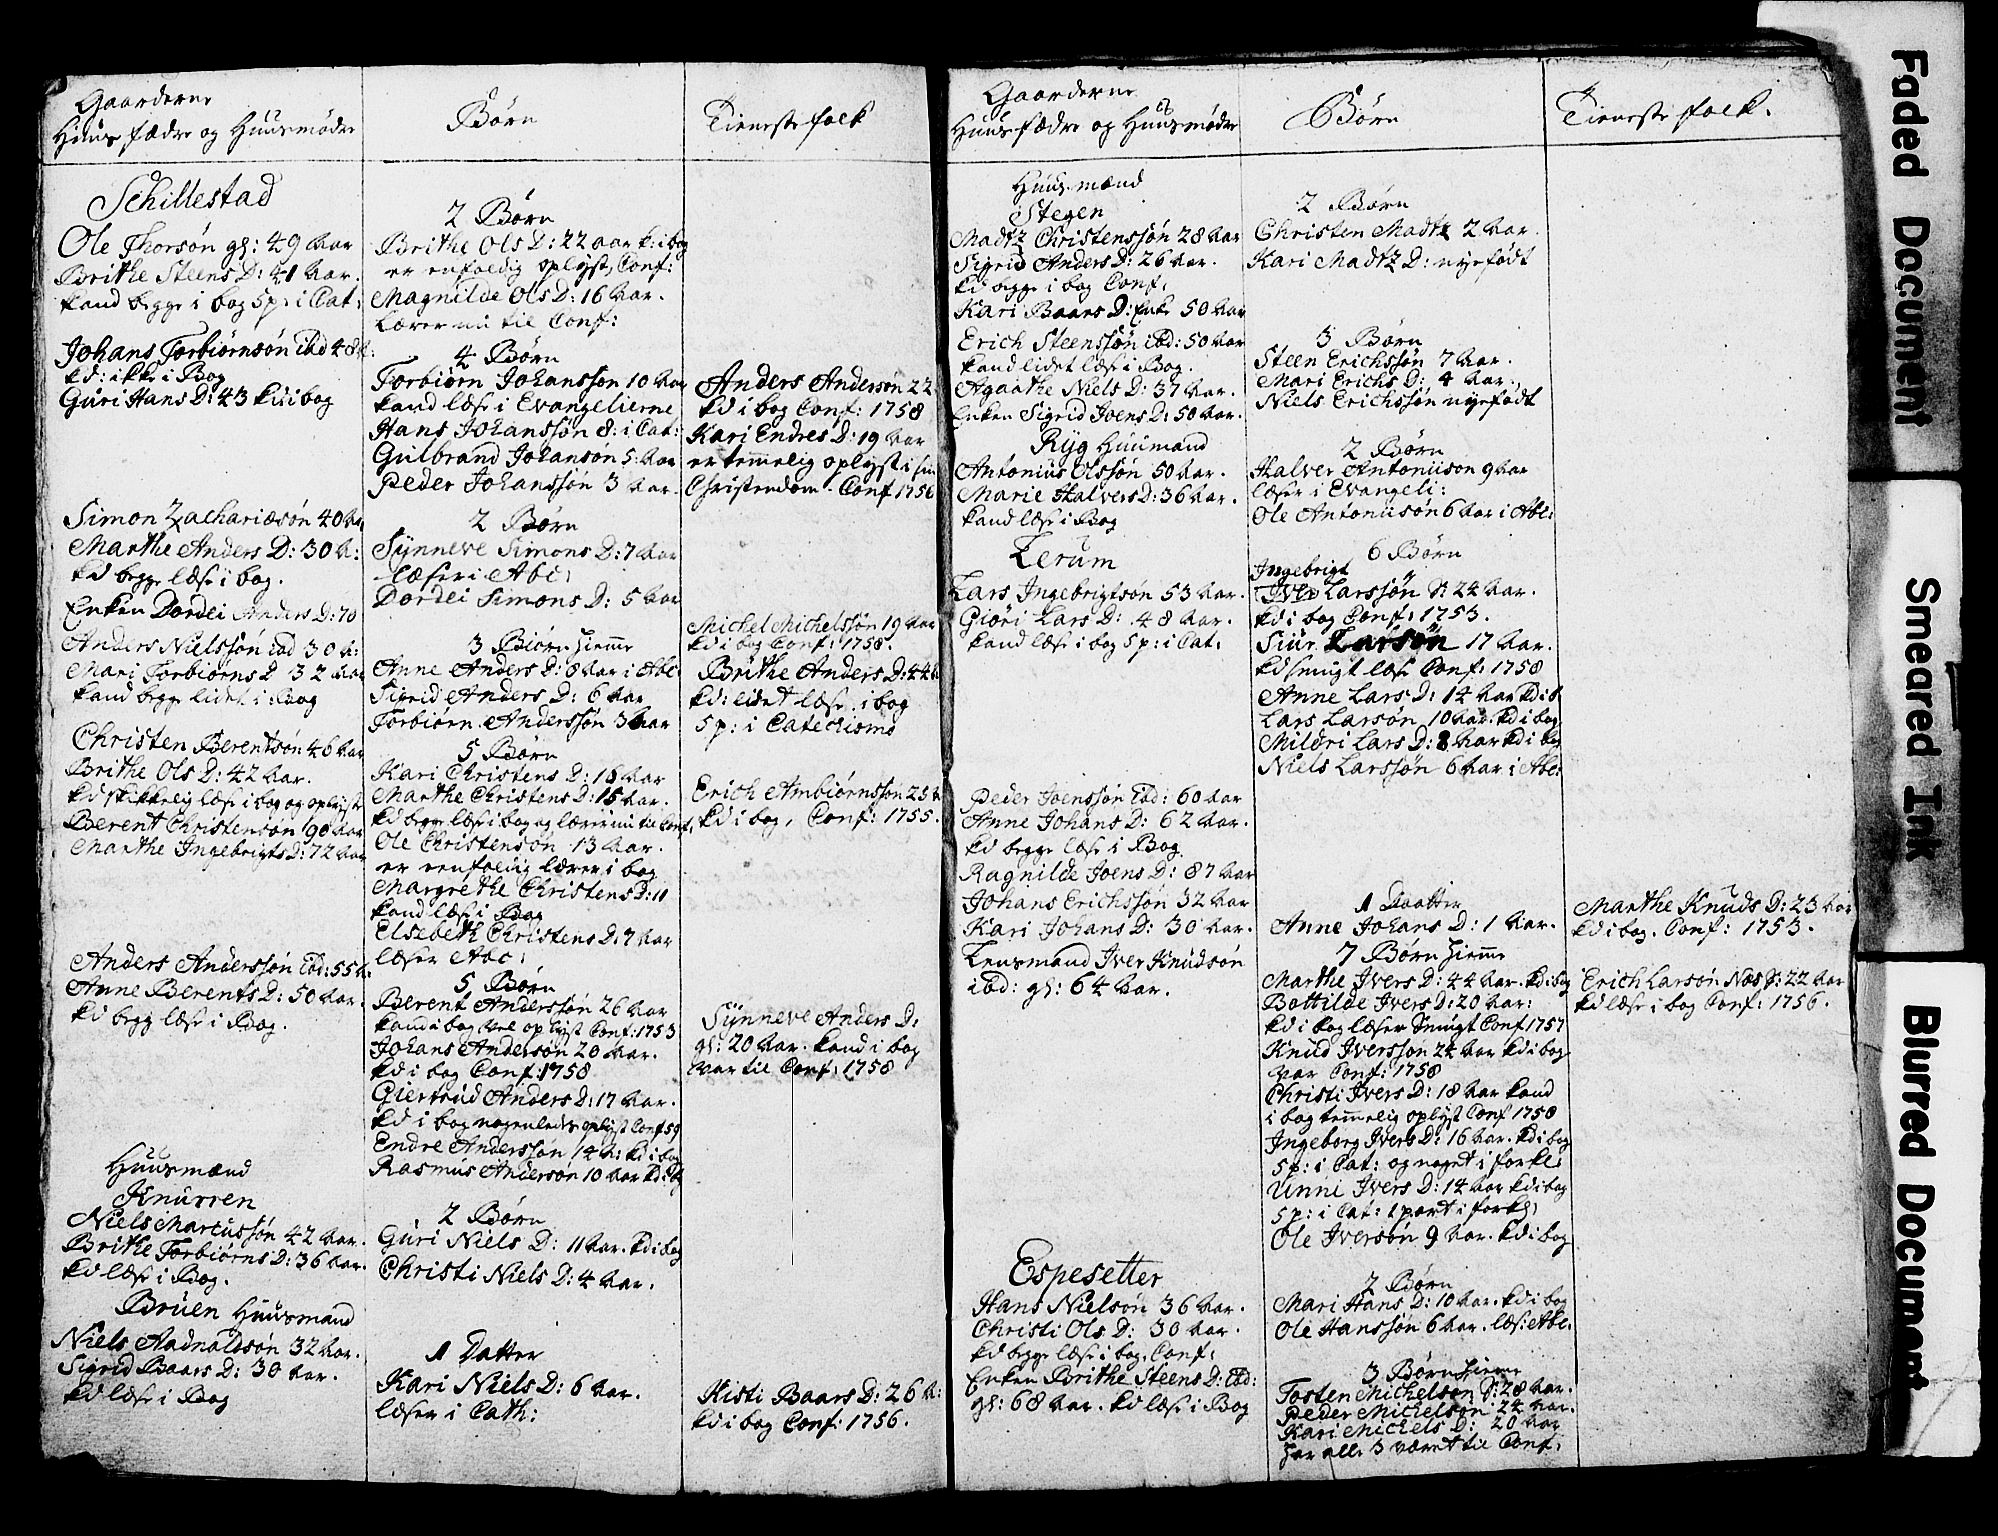 Gaarderne
Huus fædre og Huusmødre
Børn
Tieneste folk
Schillestad
Ole Thorsøn gl: 49 Aar
Brithe Steens D: 41 Aar.
kand begge i bog Sp: i Cat:
Johans Torbiørnsøn ibd 48 A:
kd: ikke i Bog
Guri Hans D: 43 kd i bog
Simon Zachariæsøn 40 Aar
Marthe Anders D: 30 A:
kd begge læse i bog.
Enken Dordei Anders D: 70
Anders Nielssøn ibd 30 A:
Mari Torbiørns D 32 Aar
kand begge lidet i Bog
Christen Berentsøn 46 Aar
Brithe Ols D: 42 Aar.
kd skikkelig læse i bog og oplyst
Berent Christensøn 90 Aar
Marthe Ingebrigts D: 72 Aar
Anders Anderssøn ibd: 55 A:
Anne Berents D: 50 Aar.
kd begge læse i Bog.
Huusmænd
Knurren
Niels Marcussøn 42 Aar.
Brithe Torbiørns D: 36 Aar.
kd læse i Bog.
Bruen Huusmand
Niels Aadnaldsøn 32 Aar.
Sigrid Baars D: 30 Aar.
kd læse i Bog
2 Børn
Brithe Ols D: 22 aar k: i bog
er enfoldig oplyst, Conf:
Magnilde Ols D: 16 Aar.
Lærer nu til Conf:
4 Børn
Torbiørn Johanssøn 10 Aar
kand læse i Evangelierne
Hans Johanssøn 8: i Cat:
Gulbrand Johansøn 5: Aar
Peder Johanssøn 3 Aar.
2 Børn
Synneve Simons D: 7 Aar
læser i Abc:
Dordei Simons D: 5 Aar
3 Børn hiemme
Anne Anders D: 8 Aar i Abc:
Sigrid Anders D: 6 Aar
Torbiørn Anderssøn 3 Aar
5 Børn
Kari Christens D: 16 Aar
Marthe Christens D: 15 Aar.
kd begge læse i bog og lærer nu til Conf:
Ole Christensøn 13 Aar.
er eenfoldig lærer i bog
Margrethe Christens D: 11
kand læse i Bog
Elsebeth Christens D: 7 Aar
læser Abc:
5 Børn
Berent Anderssøn 26 Aar
kand i bog vel oplyst Conf: 1753
Johans Andersøn 20 Aar.
kd i bog Conf: 1758
Giertrud Anders D: 17 Aar.
kd i bog nogenledes oplyst Conf 59
Endre Anderssøn 14 A: kd i bog
Rasmus Andersøn 10 Aar kd i bog
2 Børn
Guri Niels D: 11 Aar. kd i bog
Christi Niels D: 4 Aar.
1 Datter
Kari Niels D: 6 Aar.
læser i Cath:
Anders Andersøn 22
kd i bog Conf: 1758
Kari Endres D: 19 Aar
er temmelig oplyst i sin
Christendom - Conf 1756
Michel Michelssøn 19 Aar
kd i bog Conf: 1758.
Brithe Anders D: 44 A
kd: lidet læse i bog
Sp: i Catechismo
Erich Ambiørnssøn 25 A
kd i bog, Conf: 1755.
Synneve Anders D:
gl: 20 Aar. kand i bog
var til Conf: 1758
Kisti Baars D: 26 A:
kd i bog Conf: 1756.
Gaarderne
Huusfædre og Huusmødre
Børn
Tieneste folk.
Huusmænd
Stegen
Madtz Christenssøn 28 Aar
Sigrid Anders D: 26 Aar.
kd begge i bog Conf:
Kari Baars D: Enke 50 Aar
Erich Steenssøn ibd: 50 Aar
kand lidet læse i Bog.
Agaathe Niels D: 37 Aar.
Enken Sigrid Joens D: 50 Aar.
Ryg Huusmand
Antonius Olssøn 50 Aar.
Marie Halvers D: 36 Aar.
kand læse i Bog
Lerum
Lars Ingebrigtsøn 53 Aar.
Giøri Lars D: 48 Aar.
kand læse i bog Sp: i Cat:
Peder Joenssøn ibd: 60 Aar
Anne Johans D: 62 Aar.
kd begge læse i Bog.
Ragnilde Joens D: 87 Aar
Johans Erichssøn 32 Aar
Kari Johans D: 30 Aar.
Lensmand Iver Knudsøn
ibd: gl: 64 Aar.
Espesetter
Hans Nielsøn 36 Aar.
Christi Ols D: 30 Aar.
kd begge læse i bog, Conf:
Enken Brithe Steens D: ibd:
gl: 68 Aar. kd læse i Bog
2 Børn
Christen Madtz 2 Aar.
Kari Madtz D: nyefødt
3 Børn
Steen Erichssøn 7 Aar.
Mari Erichs D: 4 Aar.
Niels Erichssøn nyefødt
2 Børn
Halver Antoniison 9 Aar
læser i Evangeli:
Ole Antoniisøn 6 Aar i Abc:
6 Børn
Ingebrigt
Iver Larssøn S: 24 Aar.
kd i bog Conf: 1753.
Siur Larsøn 17 Aar.
kd smugt læse Conf: 1758
Anne Lars D: 14 Aar kd i b
Lars Larsøn 10 Aar. kd i bog
Mildri Lars D: 8 Aar kd i bog
Niels Larssøn 6 Aar i Abc:
1 Daatter
Anne Johans D: 1 Aar.
7 Børn hiemme
Marthe Ivers D: 44 Aar. kd i bog
Bottilde Ivers D: 20 Aar:
kd i bog læser Smugt Conf 1757
Knud Iverssøn 24 Aar kd i bog
var Conf: 1758
Christi Ivers D: 18 Aar kand
i bog temmelig oplyst Conf 1758
Ingeborg Ivers D: 16 Aar. kd i bog
Sp: i Cat: og noget i forkl:
Unni Ivers D: 14 Aar kd i bog
Sp: i Cat: 1 part i forkl:
Ole Iversøn 9 Aar. kd i bog
2 Børn
Mari Hans D: 10 Aar. kd i bog
Ole Hanssøn 6 Aar. læs: Abc.
3 Børn hiemme
Tosten Michelsøn S: 28 Aar.
Peder Michelsøn: 24 Aar.
Kari Michels D: 20 Aar
har alle 3 været til Conf:
Marthe Knuds D: 23 Aar
kd i bog. Conf: 1753.
Erich Larsøn Næs S: 22 Aar
kd læse i bog Conf: 1756.
Faded Document
Smeared Ink
Blurred Document